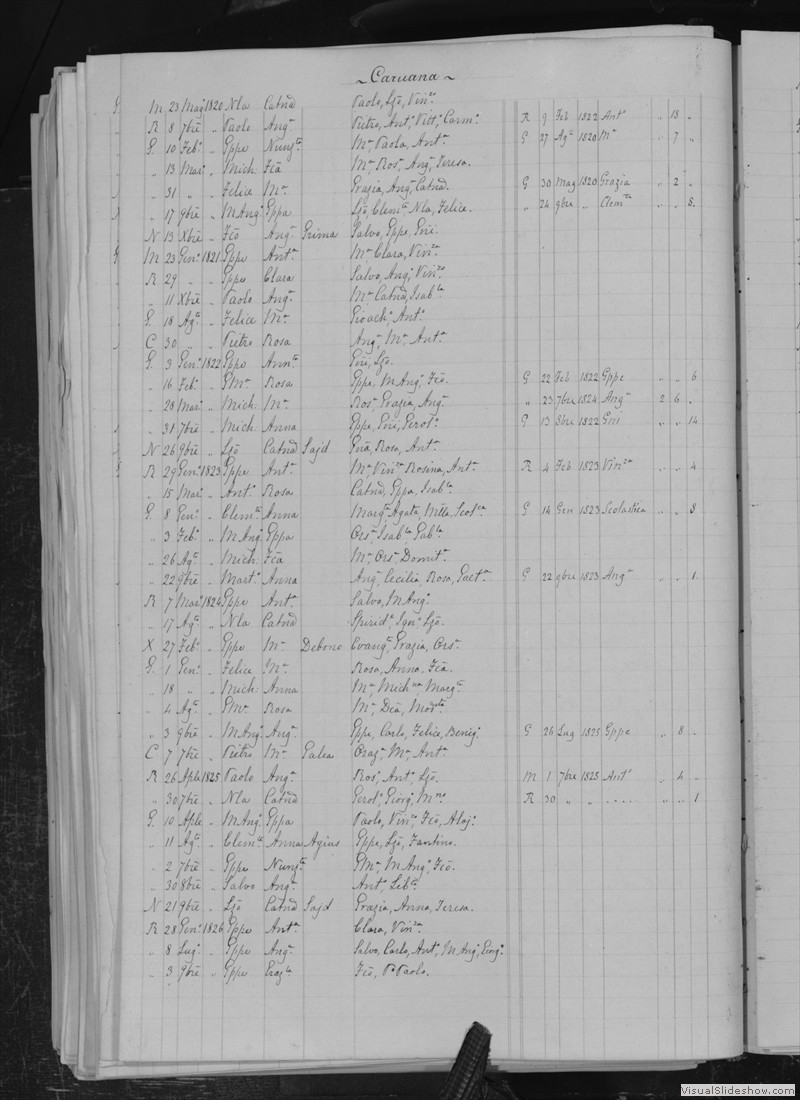 ~ Caruana ~
G M 23 Mag 1820 Nla Catnā Paolo, Ljō, Vinzo R 9 Feb 1822 Anto " 18 "
R 8 7bre " Paolo Anga Pietro, Anto, Vitto, Carmo G 27 Aga 1820 Ma " 7 "
G 10 Febo " Gppe Nunzta Ma Paola, Anta
" 13 Maro " Mich. Fcā Ma Rosa Anga Teresa.
" 31 " " Felice Ma Grazia, Anga, Catnā. G 30 Mag 1820 Grazia " 2 "
" 17 9bre " M Ango Gppa Ljō, Clemte Nla, Felice. " 24 9bre " Clemza " " 8.
N 13 Xbre " Fcō Anga Grima Salvo, Gppe, Gni.
G M 23 Geno 1821 Gppe Anta Ma Clara, Vinza
R 29 " " Gppe Clara Salvo, Ango, Vinzo
" 11 Xbre " Paolo Anga Ma Catnā, Isabla
G 18 Aga " Felice Ma Gioacho, Anto
C 30 " " Pietro Rosa Anga, Ma Anta
G 3 Geno 1822 Gppe Annta Gni, Ljō.
" 16 Febo " GMa Rosa Gppe, M Ango, Fcō. G 22 Feb 1822 Gppe " " 6
" 28 Maro " Mich. Ma Rosa Grazia, Anga " 23 7bre 1824 Anga 2 6 "
" 31 7bre " Mich. Anna Gppe, Gni, Gerolo G 13 8bre 1822 Gni " " 14
N 26 9bre " Ljō Catnā Sajd Gnā, Rosa, Anta
R 29 Geno 1823 Gppe Anta Ma Vinza Rosina, Anta R 4 Feb 1823 Vinza " " 4
" 15 Maro " Anto Rosa Catnā, Gppa, Isabla
G 8 Geno " Clemte Anna Margta Agata, Mlla, Scolca G 14 Gen 1823 Scolastica " " 8
" 3 Febo " M Ango Gppa Orsa Isabla
" 26 Aga " Mich. Fcā Ma Orsa Domita
" 22 9bre " Marto Anna Anga Cecilia, Rosa, Gaeta G 22 9bre 1823 Anga " " 1.
R 7 Maro 1824 Gppe Anta Salvo, M Ango
" 17 Aga " Nla Catnā Spirido, Igno Ljō.
X 27 Febo " Gppe Ma Debono Evanga, Grazia, Orsa
G 1 Geno " Felice Ma Rosa, Anna, Fcā.
" 18 " " Mich. Anna Ma Michna Margta
" 4 Aga " GMa Rosa Ma Deā, Modsta
" 3 9bre " M Ango Anga Gppe, Carlo, Felice, Benigo G 26 Lug 1825 Gppe " 8 "
C 7 7bre " Pietro Ma Galea Oraza Ma Anta
R 26 Aple 1825 Paolo Anga Rosa Anto Ljō. M 1 7bre 1825 Anto " 4 "
" 30 7bre " Nla Catnā Gerolo Giorgo Mno R 30 " " ..... " " 1
G 10 Aple " M Ango Gppa Paolo, Vinzo, Fcō, Aloj.
" 11 Aga " Clemte Anna Agius Gppe, Ljō, Fantino.
" 2 7bre " Gppe Nunzta GMa M Ango Fcō.
" 30 8bre " Salvo Anga Anto Liba
N 21 9bre " Ljō Catnā Sajd Grazia, Anna, Teresa.
R 28 Geno 1826 Gppe Anta Clara, Vinza
" 8 Lugo " Gppe Anga Salvo, Carlo, Anto, M Ango, Giorgo
" 3 9bre " Gppe Grazla Fcō, Paolo.
VisualSlideshow.com